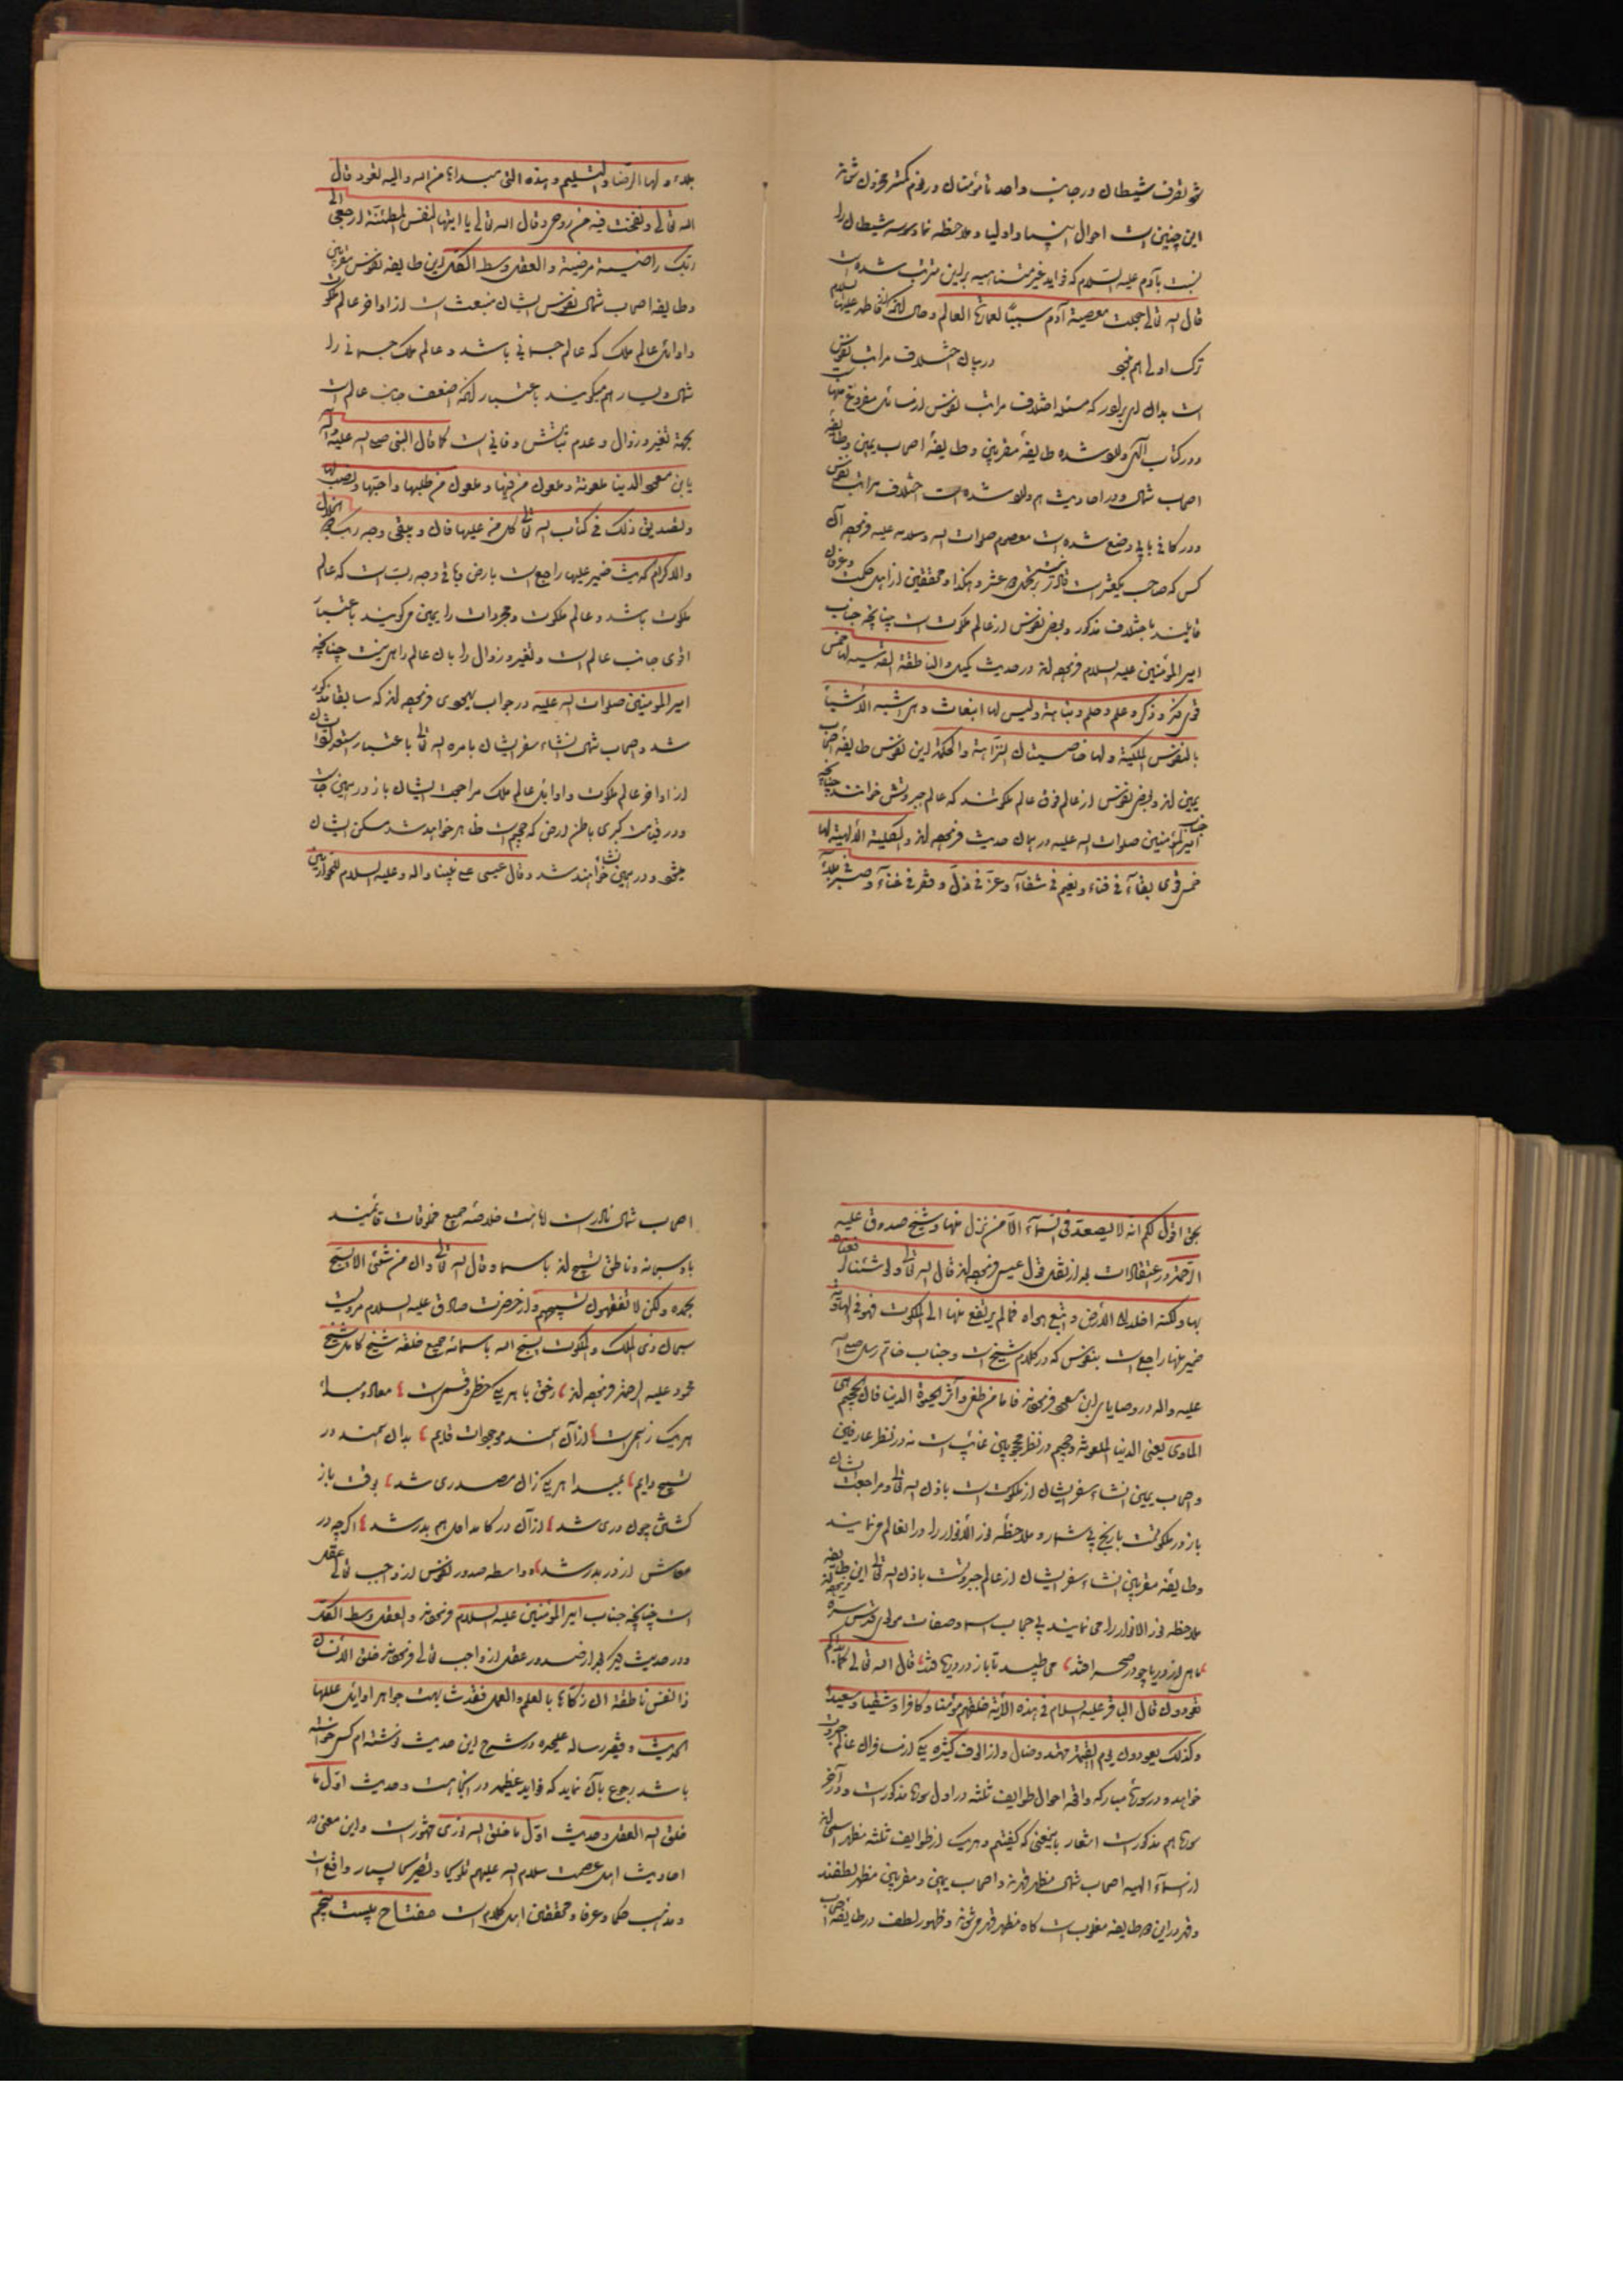 شو تصرف شیطان در جانب واحد تا مؤمنان در
این چنین است احوال انبیا و اولیا و ملاحظه نما وسوسه شیطان را
نسبت بآدم علیه السلام که فواید غیر متناهیه بر این مترتب شده است
قال الله تعالی جعلت معصیة آدم سببا لعمارة العالم و فاطمه علیها السلام
ترک اولی هم در بیان اختلاف مراتب نفوس
است بدان ای برادر که مسئله اختلاف مراتب نفوس از مسائل مفروغ عنها
و در کتاب الهی وارد شده طایفهٔ مقربین و طایفهٔ اصحاب یمین و طایفهٔ
اصحاب شمال و در احادیث هم وارد شده است اختلاف مراتب نفوس
و در کافی بابی وضع شده است معصوم صلوات الله و سلامه علیه فرموده آن
کس که صاحب یک عشر است عشر و هکذا و محققین از اهل حکمت و عرفان
قایلند باختلاف مذکور و بعض نفوس از عالم ملکوت است چنانچه جناب
امیر المؤمنین علیه السلام فرموده‌اند در حدیث کمیل والناطقة القدسیة لها خمس
قوی فکر و ذکر و علم و حلم و نباهة ولیس لها انبعاث وهی اشبه الاشیآ
بالنفوس الملکیة ولها خاصیتان النزاهة والحکمة این نفوس طایفه اصحاب
یمین‌اند و بعض نفوس از عالم فوق عالم ملکوتند که عالم جبروتش خوانند چنانچه جناب
امیر المؤمنین صلوات الله علیه در همان حدیث فرموده‌اند والکلیة الالهیة لها
خمس قوی بقآء فی فناء و نعیم فی شقآء و عز فی ذل و فقر فی غنآء و صبر فی بلاء
بلاء ولها الرضا والتسلیم وهذه التی مبداها من الله والیه تعود قال
الله تعالی و نفخت فیه من روحی و قال الله تعالی یا ایتها النفس المطمئنة ارجعی الی
ربک راضیة مرضیة والعقل وسط الکل این طایفه نفوس مقربین
و طایفه اصحاب شمال نفوس ایشان منبعث است از اواخر عالم ملکوت
و اوایل عالم ملک که عالم جسمانی باشد و عالم ملک جسمانی را
شمال و یسار هم میگویند باعتبار آنکه اضعف جانب عالم است
بجهة تغیر و زوال و عدم ثباتش و فانی است کما قال النبی صلی الله علیه وآله
یابن مسعود الدنیا ملعونة و ملعون من فیها و ملعون من طلبها و احبها و نصب لها
و تصدیق ذلک فی کتاب الله تعالی کل من علیها فان و یبقی وجه ربک ذو الجلال
والاکرام که ضمیر علیها راجع است بارض و باقی وجه رب است که عالم
ملکوت باشد و عالم ملکوت و مجردات را یمین میگویند باعتبار
اقوی جانب عالم است و تغیر و زوال را بآن عالم راهی نیست چنانچه
امیر المومنین صلوات الله علیه در جواب یهودی فرموده‌اند که سابقا مذکور
شد و اصحاب شمال انشاء سفر ایشان بامره الله تعالی باعتبار استعداد
از اواخر عالم ملکوت و اوایل عالم ملک مراجعت ایشان باز در سجین
و در قیامت کبری باطن ارض که جحیم است ظاهر خواهد شد مسکن ایشان
و در سجین خواهند شد و قال عیسی علی نبینا وآله و علیه السلام للحواریین
بحق اقول لکم انه لا یصعد فی السمآء الا من نزل منها و شیخ صدوق علیه
الرحمة در اعتقادات بعد از نقل قول عیسی فرموده‌اند قال الله تعالی و لو شئنا لرفعناه
بها ولکنه اخلد الی الارض و اتبع هواه فما لم یرتفع منها الی الملکوت فهو فی الهاویة
ضمیر منها راجع است بنفوس که در کلام شیخ است و جناب خاتم رسل صلی الله
علیه وآله در وصایای ابن مسعود فرموده‌اند فاما من طغی و آثر الحیوة الدنیا فان الجحیم هی
الماوی یعنی الدنیا الملعونة و جحیم در نظر محجوبین غائب است نه در نظر عارفین
و اصحاب یمین انشاء سفر ایشان از ملکوت است باذن الله تعالی و مراجعت ایشان
باز در ملکوت و ملاحظه نور الانوار را در انعالم می‌نمایند
و طایفه مقربین انشاء سفر ایشان از عالم جبروتست باذن الله تعالی این طایفه
ملاحظه نور الانوار را می‌نمایند بی حجاب اسما و صفات مولوی قدس سره
ماهی از دریا چو در صحرا افتد می‌طپد تا باز در دریا فتد قال الله تعالی کما بداکم
تعودون قال الباقر علیه السلام فی هذه الآیة خلقهم مؤمنا و کافرا و شقیا و سعیدا
و کذلک یعودون یوم القیمة مهتد و ضال و از
خواهد و در سورهٔ مبارکه واقعه احوال طوایف ثلثه در اول سوره مذکور است و در آخر
سوره هم مذکور است اشعار باینمعنی که گفتیم و هر یک از طوایف ثلثه مظهر اسمی‌اند
از اسمآء الهیه اصحاب شمال مظهر قهرند و اصحاب یمین و مقربین مظهر لطفند
و قهر در این دو طایفه مغلوب است گاه مظهر قهر می‌شوند و ظهور لطف در طایفه اصحاب
اصحاب شمال نادر است خلاصه جمیع مخلوقات قائمند
باو سبحانه و ناطق تسبیح‌اند باسما و قال الله تعالی و ان من شئ الا یسبح
بحمده ولکن لا تفقهون تسبیحهم و از حضرت صادق علیه السلام مرویست
سبحان ذی الملک والملکوت یسبح الله باسمائه جمیع خلقه شیخ کامل شیخ
محمود علیه الرحمة فرموده‌اند ز حق با هر یکی حظی و قسمی است معاد و مبدا
هر یک ز اسمی است از آن اسمند موجودات قایم بدان اسمند در
تسبیح دایم بمبدا هر یکی زان مصدری شد بوقت باز
گشتن چون دری شد از آن در کامد اول هم بدر شد اگرچه در
معاش از در بدر شد و واسطه صدور نفوس از واجب تعالی عقل
است چنانچه جناب امیر المؤمنین علیه السلام فرمودند والعقل وسط الکل
و در حدیث دیگر بعد از صدور عقل از واجب تعالی فرمودند خلق الانسان
ذا نفس ناطقة ان زکاها بالعلم والعمل فقد شابهت جواهر اوایل عللها
الحدیث و فقیر رساله علیحده در شرح این حدیث نوشته‌ام کسی خواسته
باشد رجوع بآن نماید که فواید عظیمه در انجا هست و حدیث اول ما
خلق الله العقل و حدیث اول ما خلق الله نوری مشهور است و این معنی در
احادیث اهل عصمت سلام الله علیهم تلویحا و تصریحا بسیار واقع است
و مذهب حکما و عرفا و محققین اهل کلام است مفتاح بیست پنجم